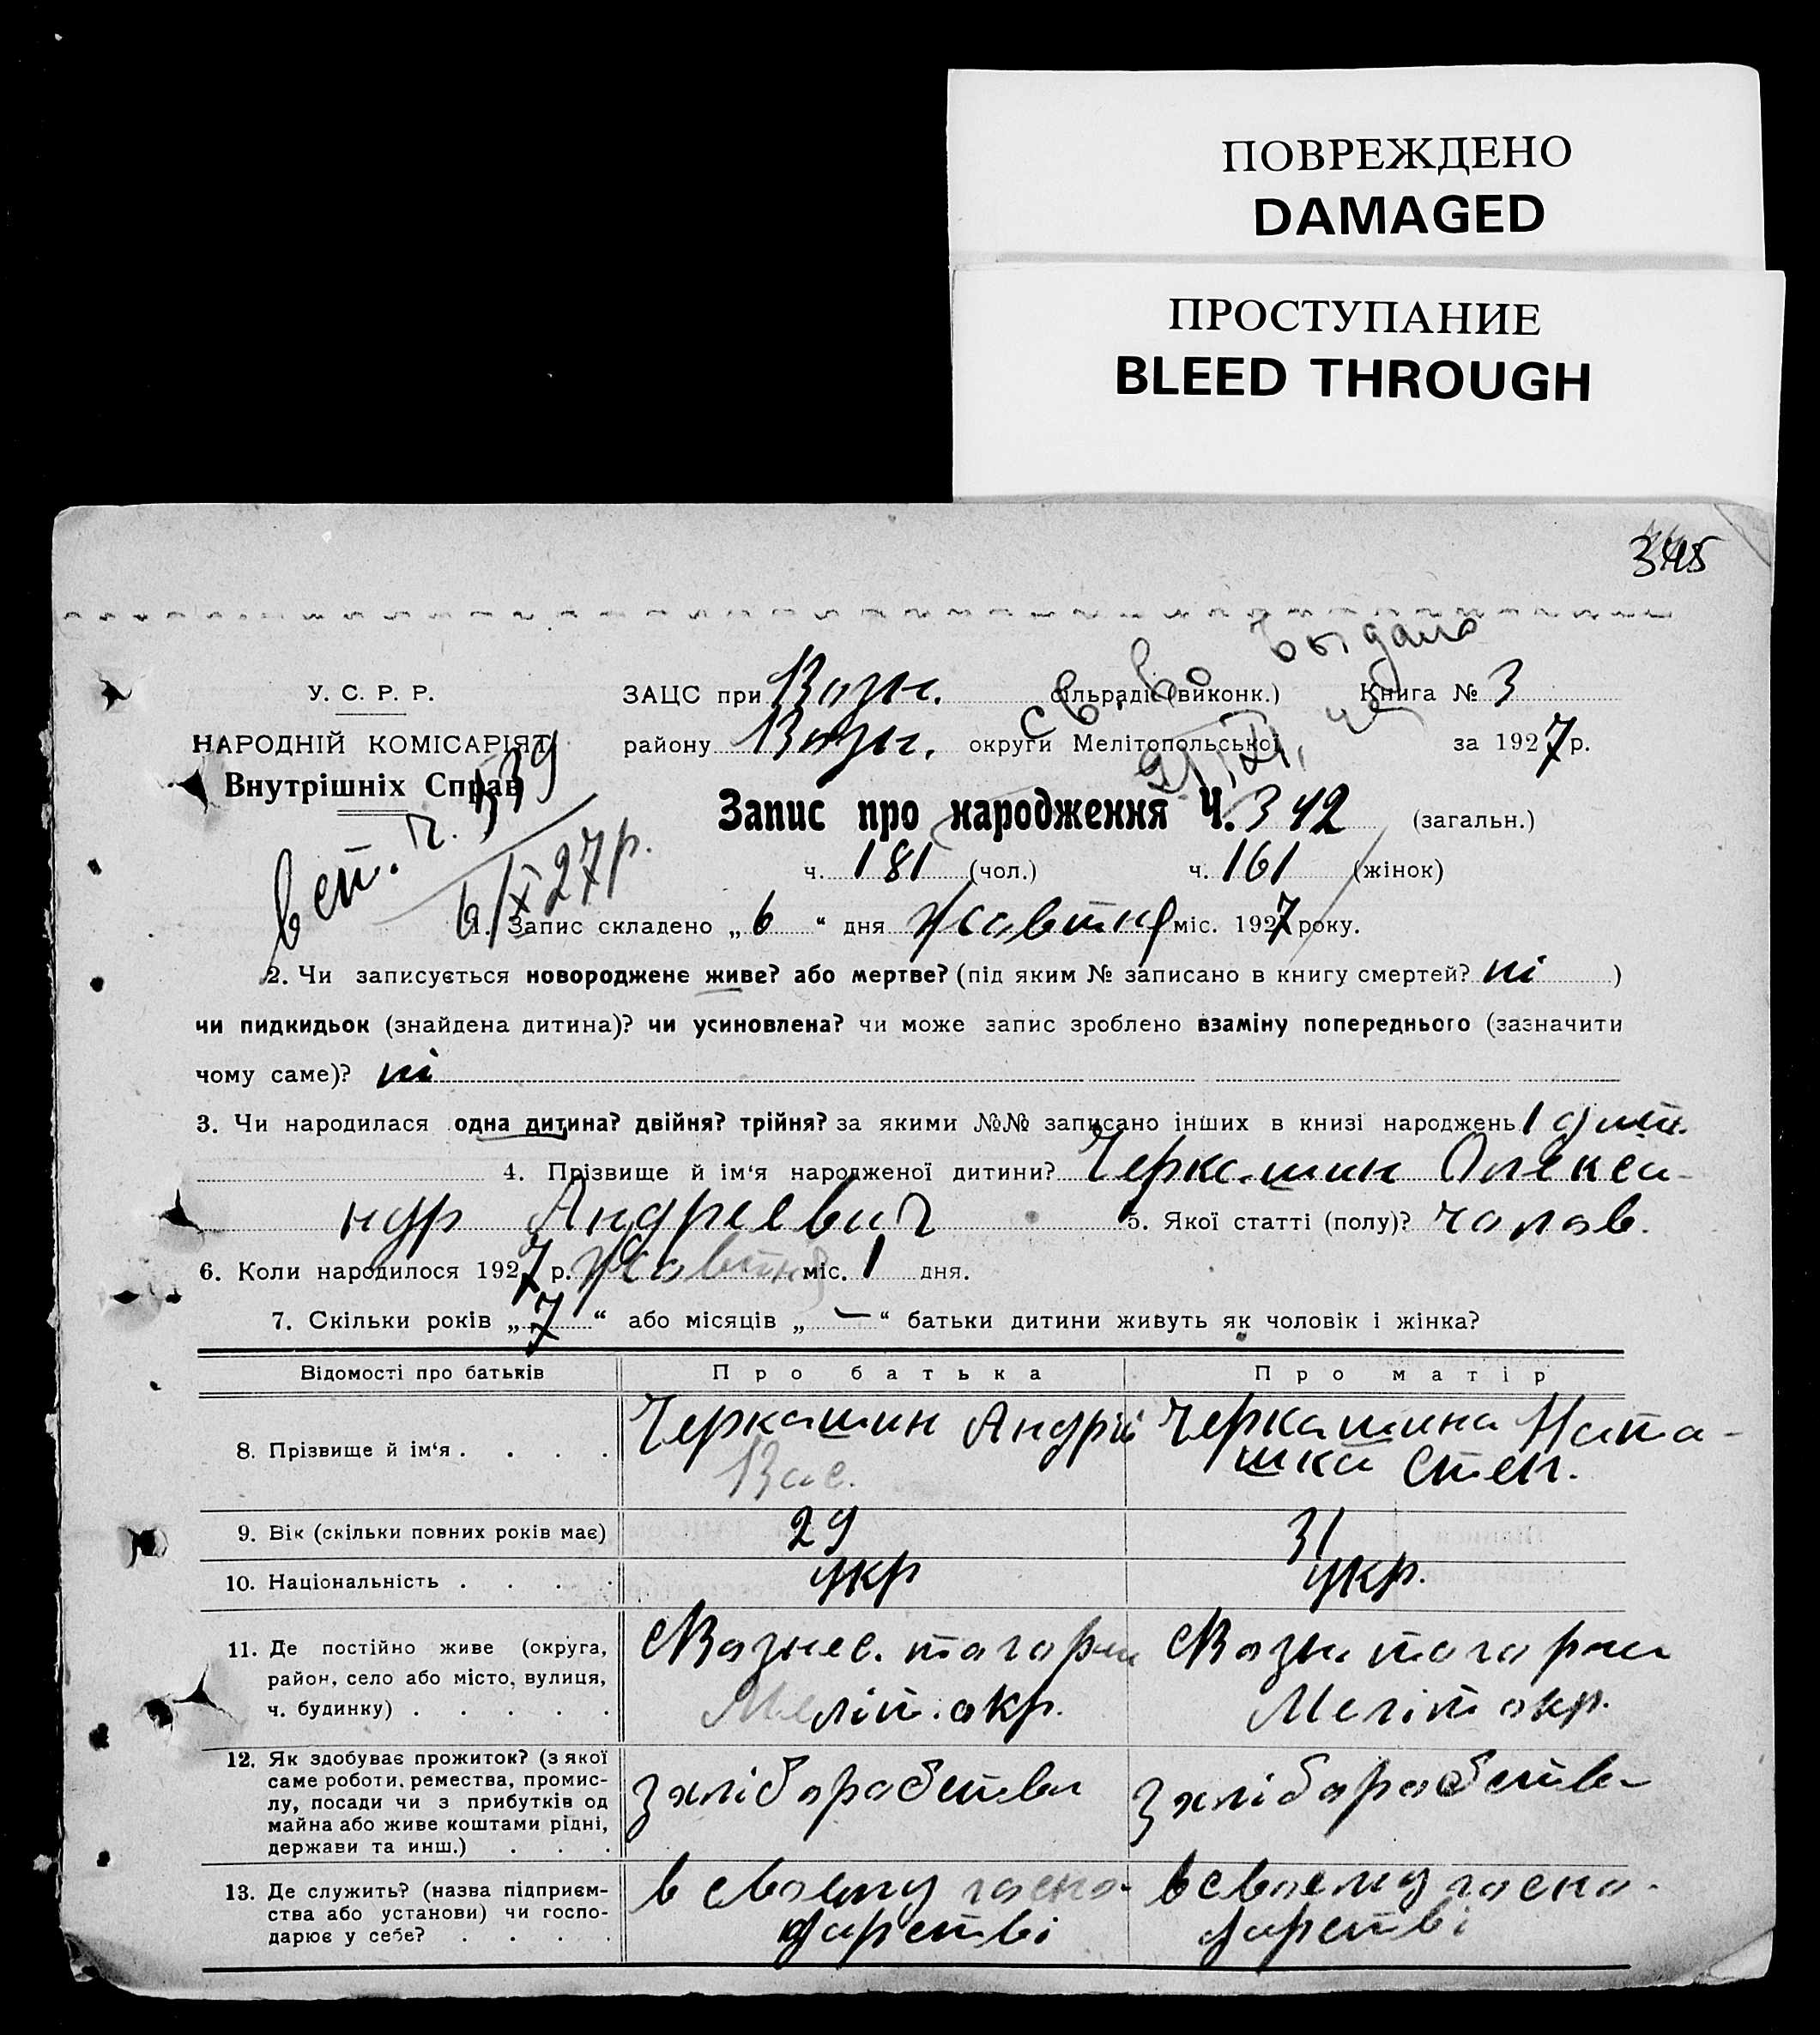 ПОВРЕЖДЕНО
DAMAGED
ПРОСТУПАНИЕ
BLEED THROUGH
345
св-во выдано
У. С. Р. Р.
ЗАЦС при Возн. сільраді (виконк.) Книга № 3
НАРОДНІЙ КОМІСАРІЯТ
району Возн. округи Мелітопольської за 1927 р.
Внутрішніх Справ
Запис про народження Ч. 342 (загальн.)
ч. 539
6/X 27 р.
ч. 181 (чол.) ч. 161 (жінок)
1. Запис складено „ 6 “ дня жовтня міс. 1927 року.
2. Чи записується новороджене живе? або мертве? (під яким № записано в книгу смертей? ні )
чи пидкидьок (знайдена дитина)? чи усиновлена? чи може запис зроблено взаміну попереднього (зазначити
чому саме)? ні
3. Чи народилася одна дитина? двійня? трійня? за якими №№ записано інших в книзі народжень 1 дит.
4. Прізвище й ім‘я народженої дитини? Черкашин Олекса-
ндр Андреевич 5. Якої статті (полу)? чолов.
6. Коли народилося 1927 р. жовтня міс. 1 дня.
7. Скільки років „ 7 “ або місяців „ — “ батьки дитини живуть як чоловік і жінка?
Відомості про батьків Про батька Про матір
8. Прізвище й ім‘я . . . . Черкашин Андрій Черкашина Ната-
Вас. шка Степ.
9. Вік (скільки повних років має) 29 31
10. Національність . . . . укр укр.
11. Де постійно живе (округа, с Вознес. того рна с Возн того рна
район, село або місто, вулиця,
ч. будинку) . . . . . Меліт. окр. Меліт окр.
12. Як здобуває прожиток? (з якої
саме роботи, ремества, промис- з хліборобства з хліборобства
лу, посади чи з прибутків од
майна або живе коштами рідні,
держави та инш.) . . .
13. Де служить? (назва підприєм- в своему госпо- в своему госпо-
ства або установи) чи госпо- дарстві дарстві
дарює у себе? . . . .